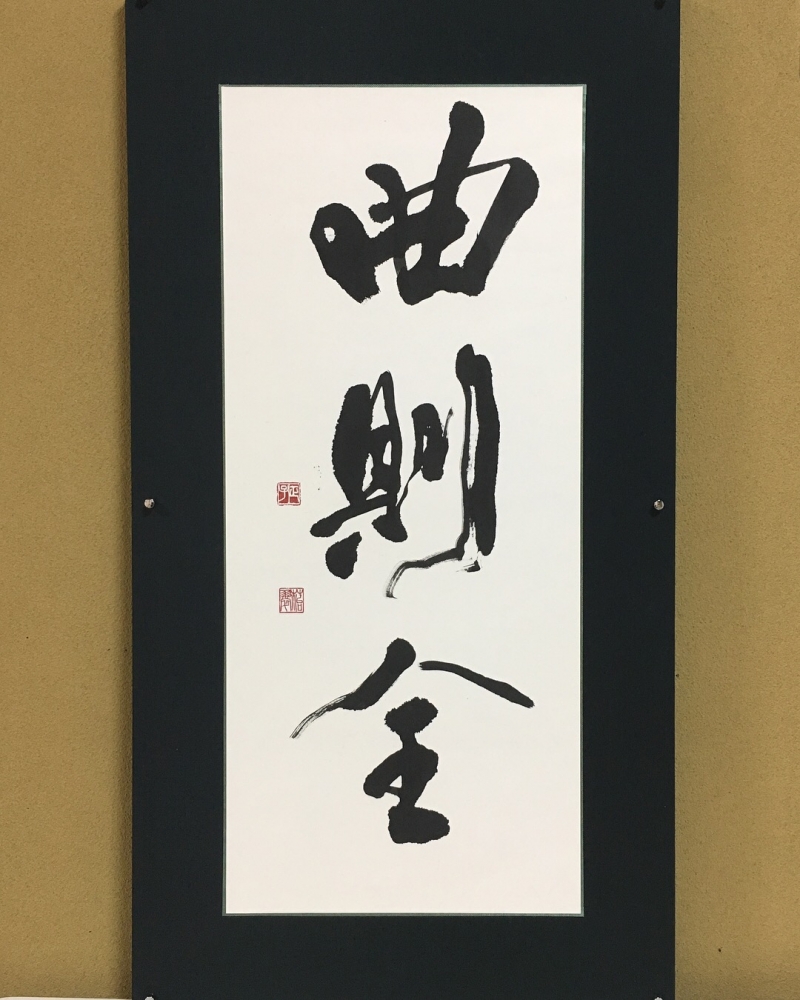 曲則全